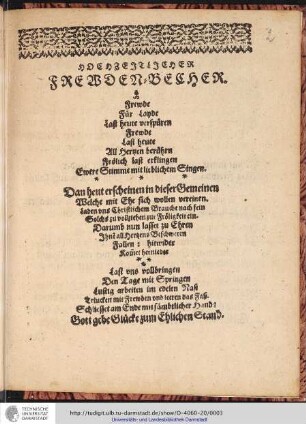 2
HOCHZEITLICHER
FREWDEN-BECHER.
Frewde
Für Layde
Last heute verspüren
Frewde
Last heute
All Hertzen berührn
Frölich last erklingen
Ewere Stimme mit lieblichem Singen.
Dan heut erscheinen in dieser Gemeinen
Welche mit Ehe sich wollen vereinen,
laden uns Christlichem Brauche nach fein
Solchs zu vollziehen zur Frölichkeit ein.
Darumb nun lasset zu Ehren
Ihnn all Hertzens Beschweren
Fallen: hiernider
Kommet hernieder
Last uns vollbringen
Den Tage mit Springen
Lustig arbeiten im edelen Naß
Trincket mit Frewden und leeret das Faß.
Schliesset am Ende mit sämbtlicher Hand:
Gott gebe Glücke zum Ehlichen Stand.
TECHNISCHE
UNIVERSITÄT
DARMSTADT
http://tudigit.ulb.tu-darmstadt.de/show/O-4060-20/0003
Universitäts- und Landesbibliothek Darmstadt